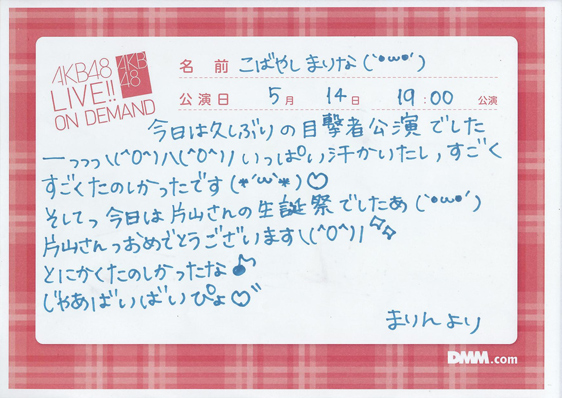 AKB48
LIVE!!
ON DEMAND
AKB
48
名 前 こばやし まりな (`•ω•´)
公演日 5月 14日 19:00 公演
今日は久しぶりの目撃者公演でした
ーっっっ\(^o^)/\(^o^)/ いっぱい汗かいたし,すごく
すごくたのしかったです(*´ω`*)♡
そしてっ今日は片山さんの生誕祭でしたあ(`•ω•´)
片山さんっおめでとうございます\(^o^)/✨
とにかくたのしかったな♪
じゃあばいばいぴょ♡"
まりんより
DMM.com